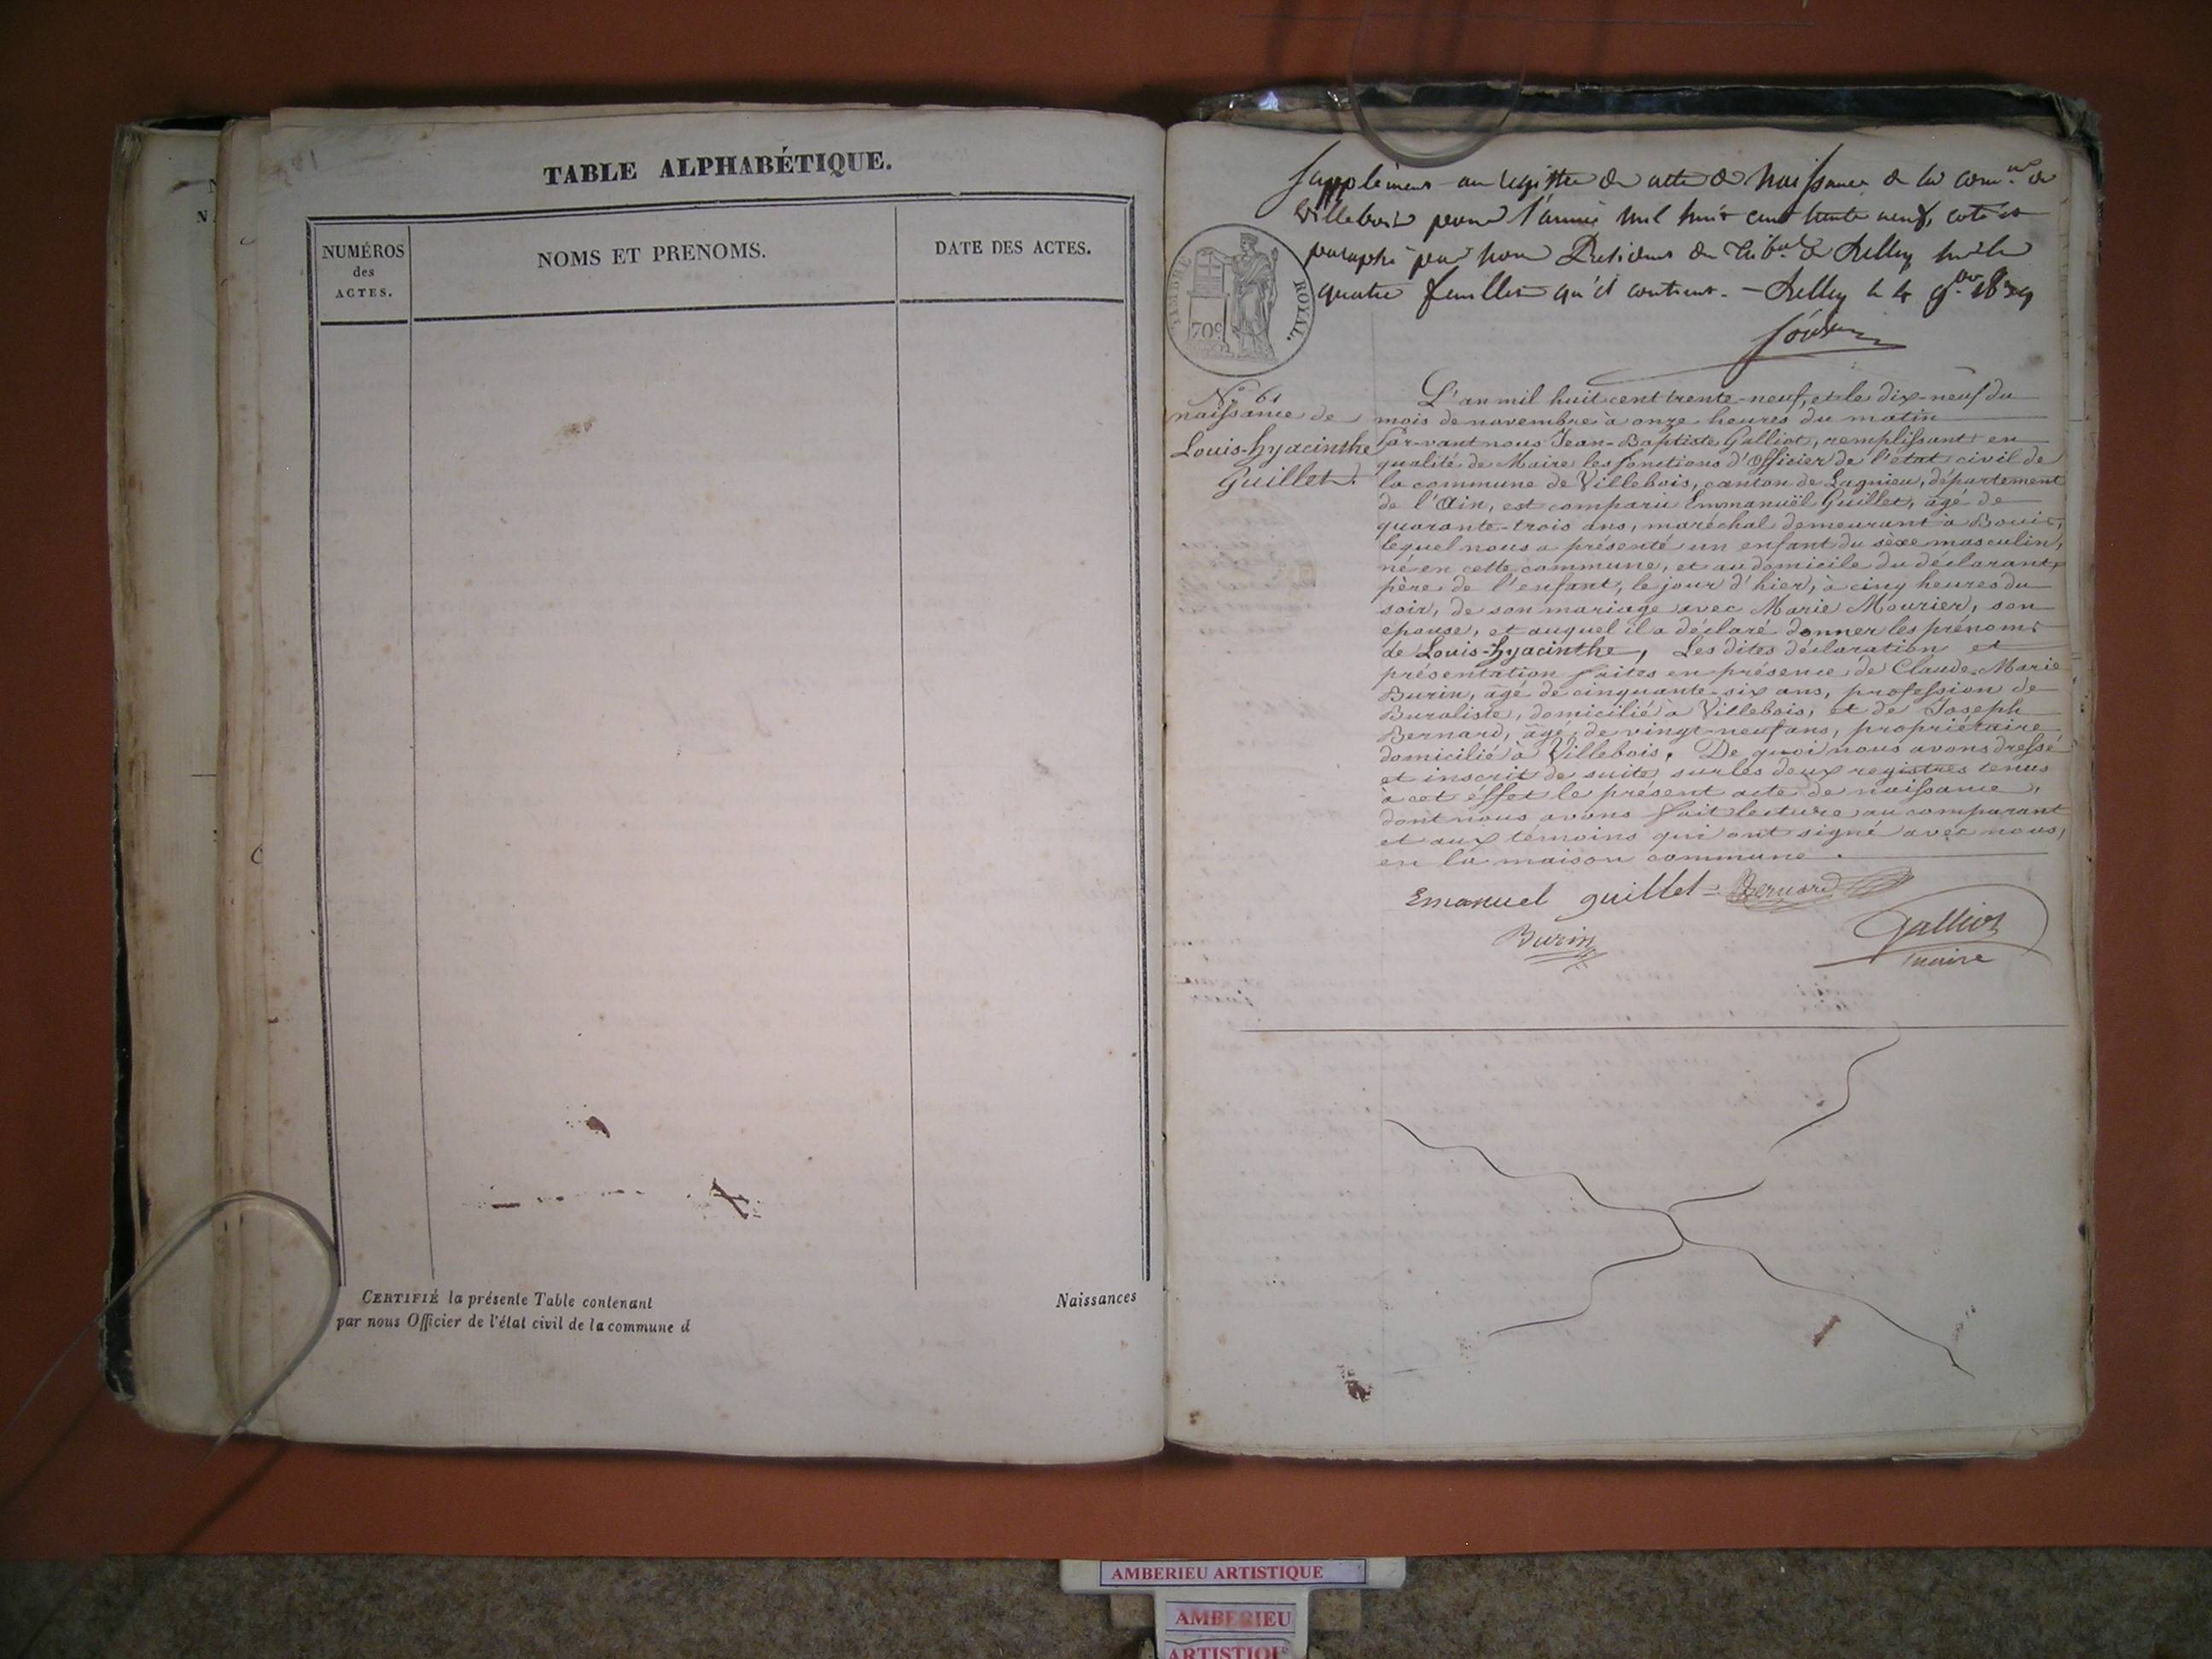 TABLE ALPHABÉTIQUE.
NUMÉROS
des
ACTES.
NOMS ET PRENOMS.
DATE DES ACTES.
CERTIFIÉ la présente Table contenant
Naissances
par nous Officier de l'état civil de la commune d
Supplément au registre des actes de Naissance de la com.ne de
Villebois pour l'année mil huit cent trente neuf, coté et
paraphé par nous Président du Trib.al de Belley sur les
quatre feuillets qu'il contient. – Belley le 4 9bre 1839
TIMBRE ROYAL.
70c
No 61
naissance de
Louis-hyacinthe
Guillet.
L'an mil huit cent trente-neuf, et le dix-neuf du
mois de novembre à onze heures du matin
Par-vant nous Jean-Baptiste Galliot, remplissant en
qualité de Maire les fonctions d'officier de l'état civil de
la commune de Villebois, canton de Lagnieu, département
de l'Ain, est comparu Emmanuël Guillet, âgé de
quarante-trois ans, maréchal demeurant à Bouis,
lequel nous a présenté un enfant du sèxe masculin,
né en cette commune, et au domicile du déclarant,
père de l'enfant, le jour d'hier, à cinq heures du
soir, de son mariage avec Marie Mourier, son
épouse, et auquel il a déclaré donner les prénoms
de Louis-hyacinthe, Les dites déclaration et
présentation faites en présence de Claude-Marie
Burin, âgé de cinquante-six ans, profession de
Buraliste, domicilié à Villebois, et de Joseph
Bernard, âgé de vingt-neuf ans, propriétaire
domicilié à Villebois. De quoi nous avons dressé
et inscrit de suite sur les deux registres tenus
à cet éffet le présent acte de naissance,
dont nous avons fait lecture au comparant
et aux témoins qui ont signé avec nous,
en la maison commune.
Emanuel guillet Bernard
Burin
Galliot
maire
AMBERIEU ARTISTIQUE
AMBERIEU
ARTISTIQUE